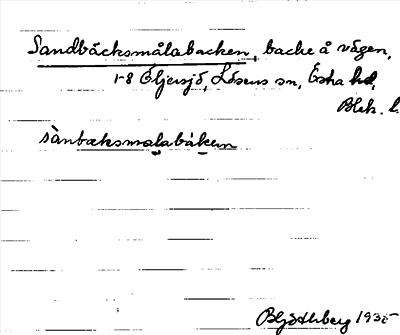 Sandbäcksmålabacken, backe å vägen,
1-8 Öljersjö, Lösens sn, Östra hd,
Blek. l.
sànbæksmalabákenn
1935